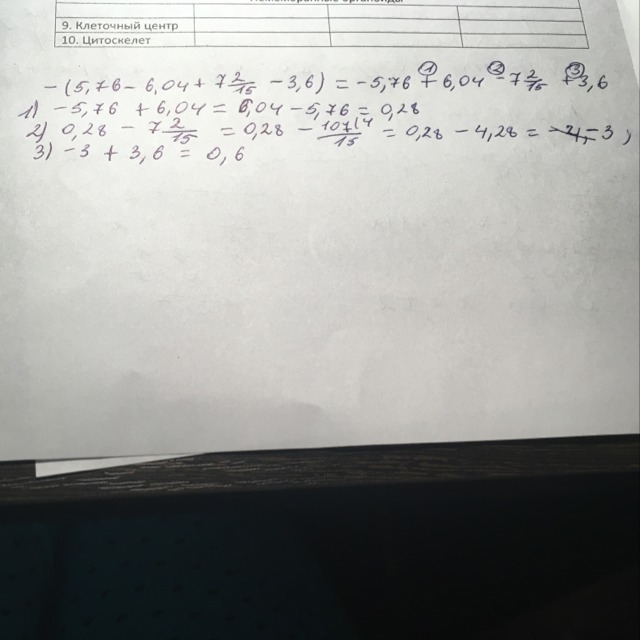 9. Клеточный центр
10. Цитоскелет
-(5,76 - 6,04 + 7 2/15 - 3,6) = -5,76 + 6,04 - 7 2/15 + 3,6
1) -5,76 + 6,04 = 6,04 - 5,76 = 0,28
2) 0,28 - 7 2/15 = 0,28 - 107/15 = 0,28 - 4,28 = -3 ,
3) -3 + 3,6 = 0,6